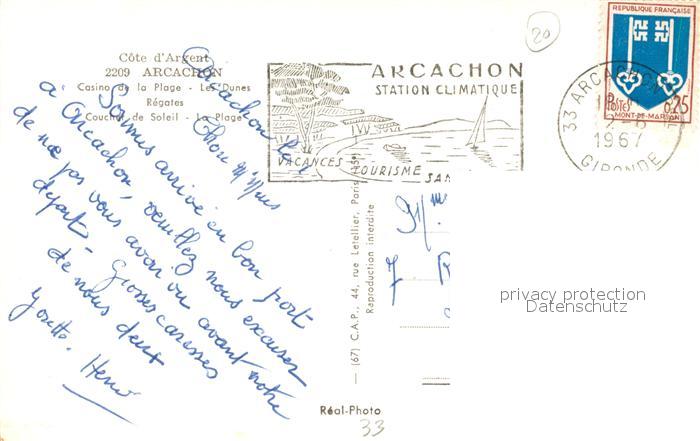 20
Côte d'Argent
2209 ARCACHON
Casino de la Plage - Les Dunes
Régates
Coucher de Soleil - La Plage
ARCACHON
STATION CLIMATIQUE
VACANCES
TOURISME
REPUBLIQUE FRANÇAISE
POSTES
0,25
MONT-DE-MARSAN
33 ARCACHON
1967
GIRONDE
Arcachon le
Sommes arrivé en bon port
à Arcachon, veuillez nous excuser
de ne pas vous avoir vu avant notre
départ - Grosses caresses
de nous deux
Yvette. Henri
(67) C.A.P., 44, rue Letellier, Paris-15e
Reproduction interdite
7
privacy protection
Datenschutz
Réal-Photo
33